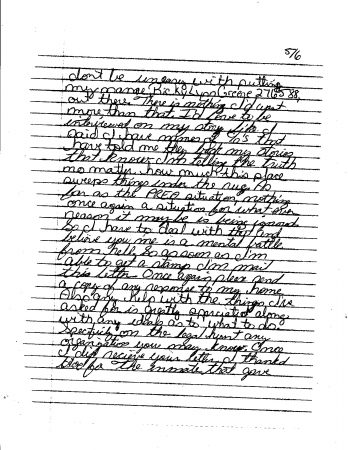 5/6
don't be uneasy with putting
my name Ricky Lynn Greene 276588,
out there. There is nothing I'd want
more than that. I'd love to be
interviewed on my story. Like I
said I have names of CO's that
have told me they back my stories
that know I'm telling the truth
no matter how much this place
sweeps things under the rug. As
far as the PREA situation, nothing
once again a situation for what ever
reason it may be is being ignored
So I have to deal with that and
believe you me is a mental battle
from hell. So as soon as I'm
able to get a stamp I'm mail
this letter. Once again please send
a copy of any response to my home
Also any help with the things I've
asked for is greatly appreciated along
with any ideals as to what to do.
Specificly on the legal hunt any
organization you may know. Once
I did receive your letter I thanked
the inmate that gave